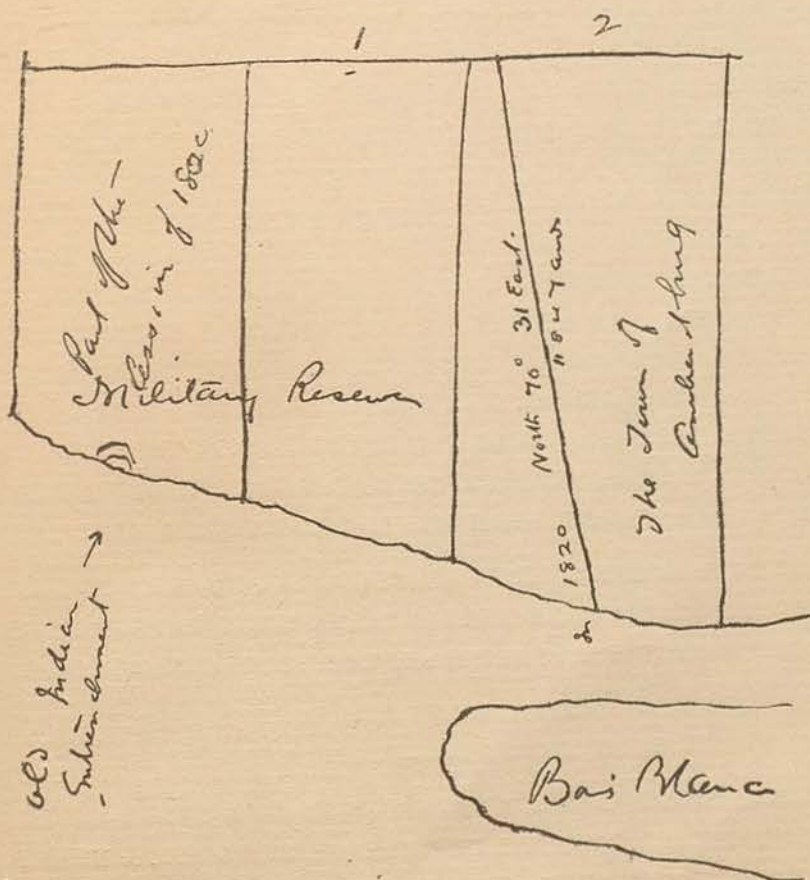 1
2
Part of the
Cession of 1800
Military Reserve
North 70° 31 East.
1184 Yards
In 1820
The Town of
Amherstburg
Old Indian
Entrenchment
Bois Blanc